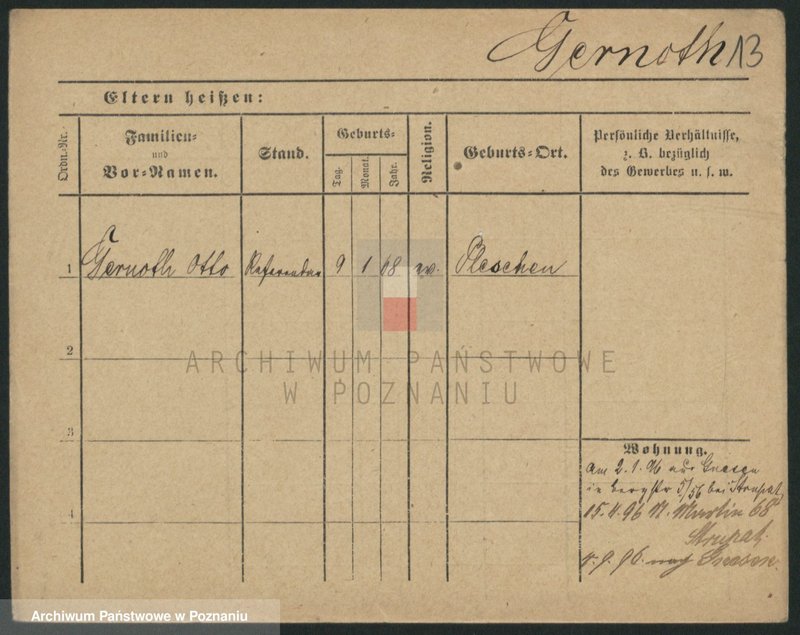 Gernoth 13
Eltern heißen:
Ordn.-Nr.
Familien-
und
Vor-Namen.
Stand.
Geburts-
Tag.
Monat.
Jahr.
Religion.
Geburts-Ort.
Persönliche Verhältnisse,
z. B. bezüglich
des Gewerbes u. s. w.
1 Gernoth Otto Referendar 9 1 68 ev. Pleschen
2
ARCHIWUM PAŃSTWOWE
W POZNANIU
3
Wohnung.
am 2. 1. 96 aus Gnesen
in Bergstr 5/56 bei Strupat
4
15.4.96 St. Martin 68
Strupat.
9. 96. nach Gnesen.
Archiwum Państwowe w Poznaniu